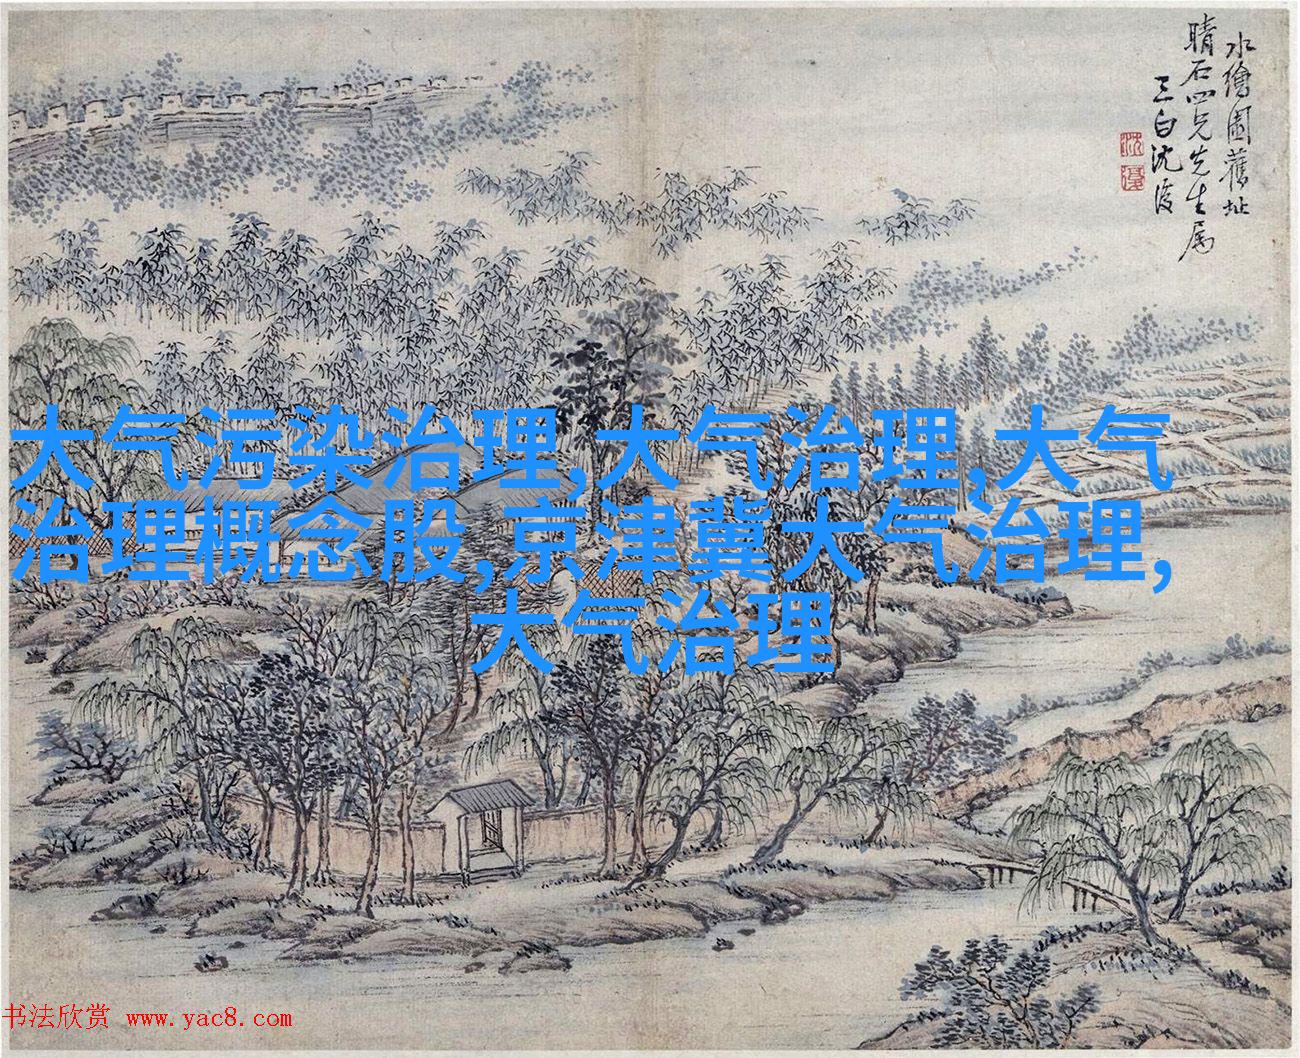 水繪園舊址
晴石四兄先生属
三白沈復
沈
復
大气污染治理,大气治理,大气
治理概念股,京津冀大气治理,
大气治理
书法欣赏 www.yac8.com